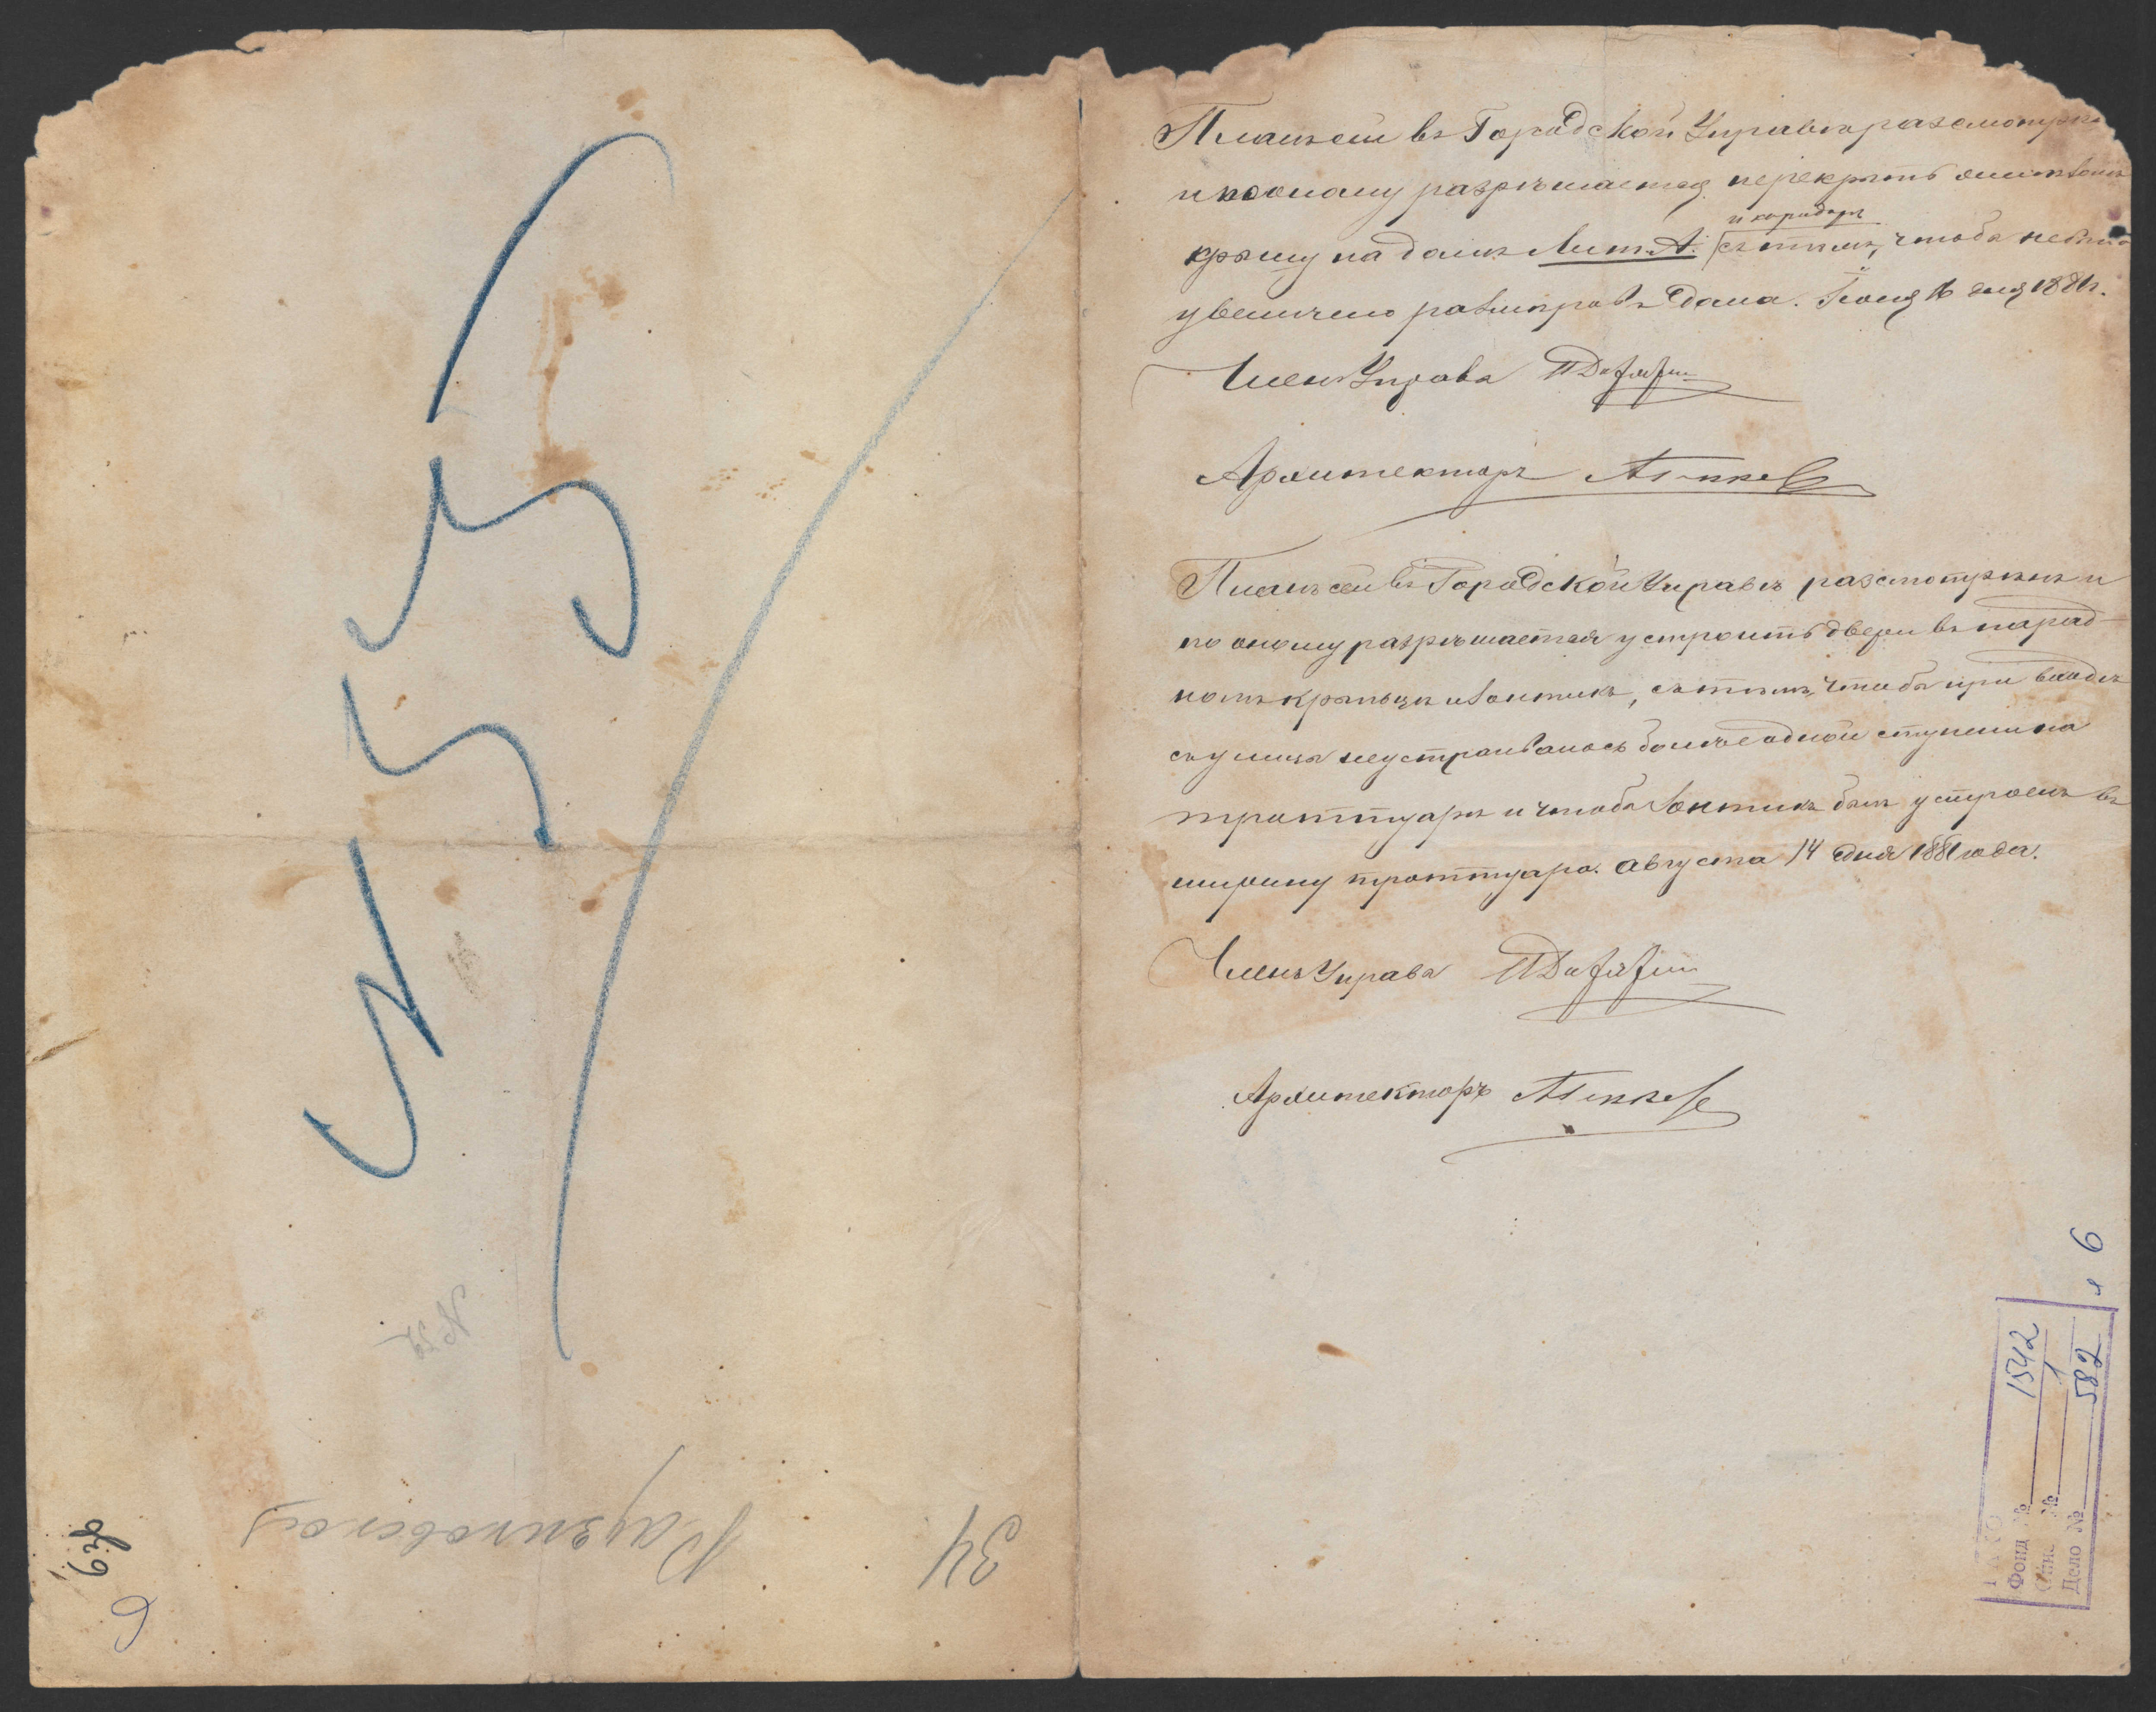 Планъ сей въ Городской Управѣ разсмотрѣнъ
и по оному разрѣшается перекрыть
и каридоръ
крышу на домѣ Лит. А. съ тѣмъ, чтобы не было
увеличено размѣровъ дома. Іюня 16 дня 1881 г.
Членъ Управы
Архитекторъ
Планъ сей въ Городской Управѣ разсмотрѣнъ и
по оному разрѣшается устроить двери въ парад-
номъ крыльцѣ и зонтикъ, съ тѣмъ, чтобы при входѣ
съ улицы не устраивалось болѣе одной ступени на
троттуарѣ и чтобы зонтикъ былъ устроенъ въ
ширину троттуара. Августа 14 дня 1881 года.
Членъ Управы
Архитекторъ
34
№ 22
6
Фонд № 1542
Опис. № 1
Дело № 582
л 6